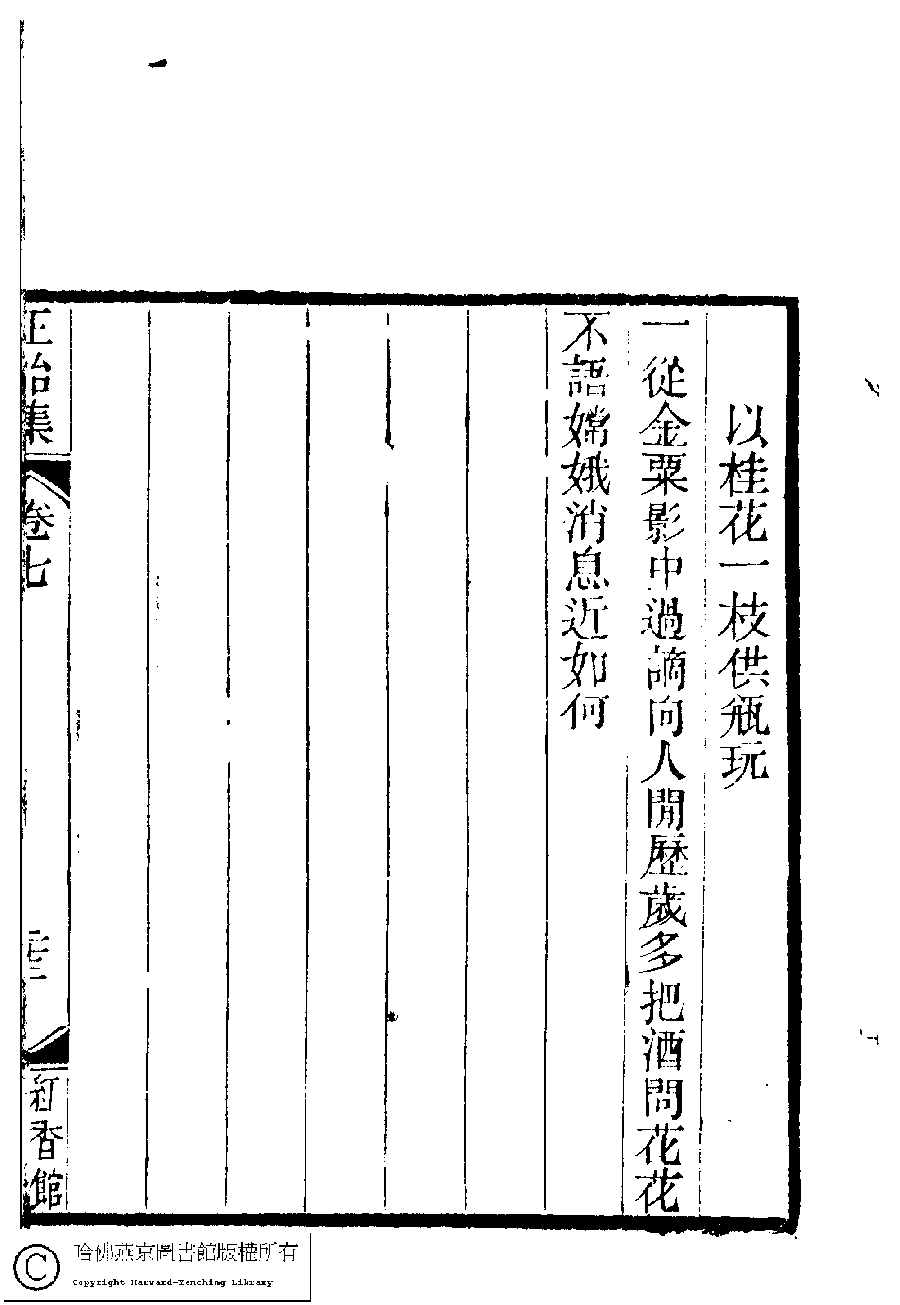 以桂花一枝供瓶玩
一從金粟影中過謫向人閒歷歲多把酒問花花
不語嫦娥消息近如何
正始集
卷七
紅香館
哈佛燕京圖書館版權所有
Copyright Harvard-Yenching Library